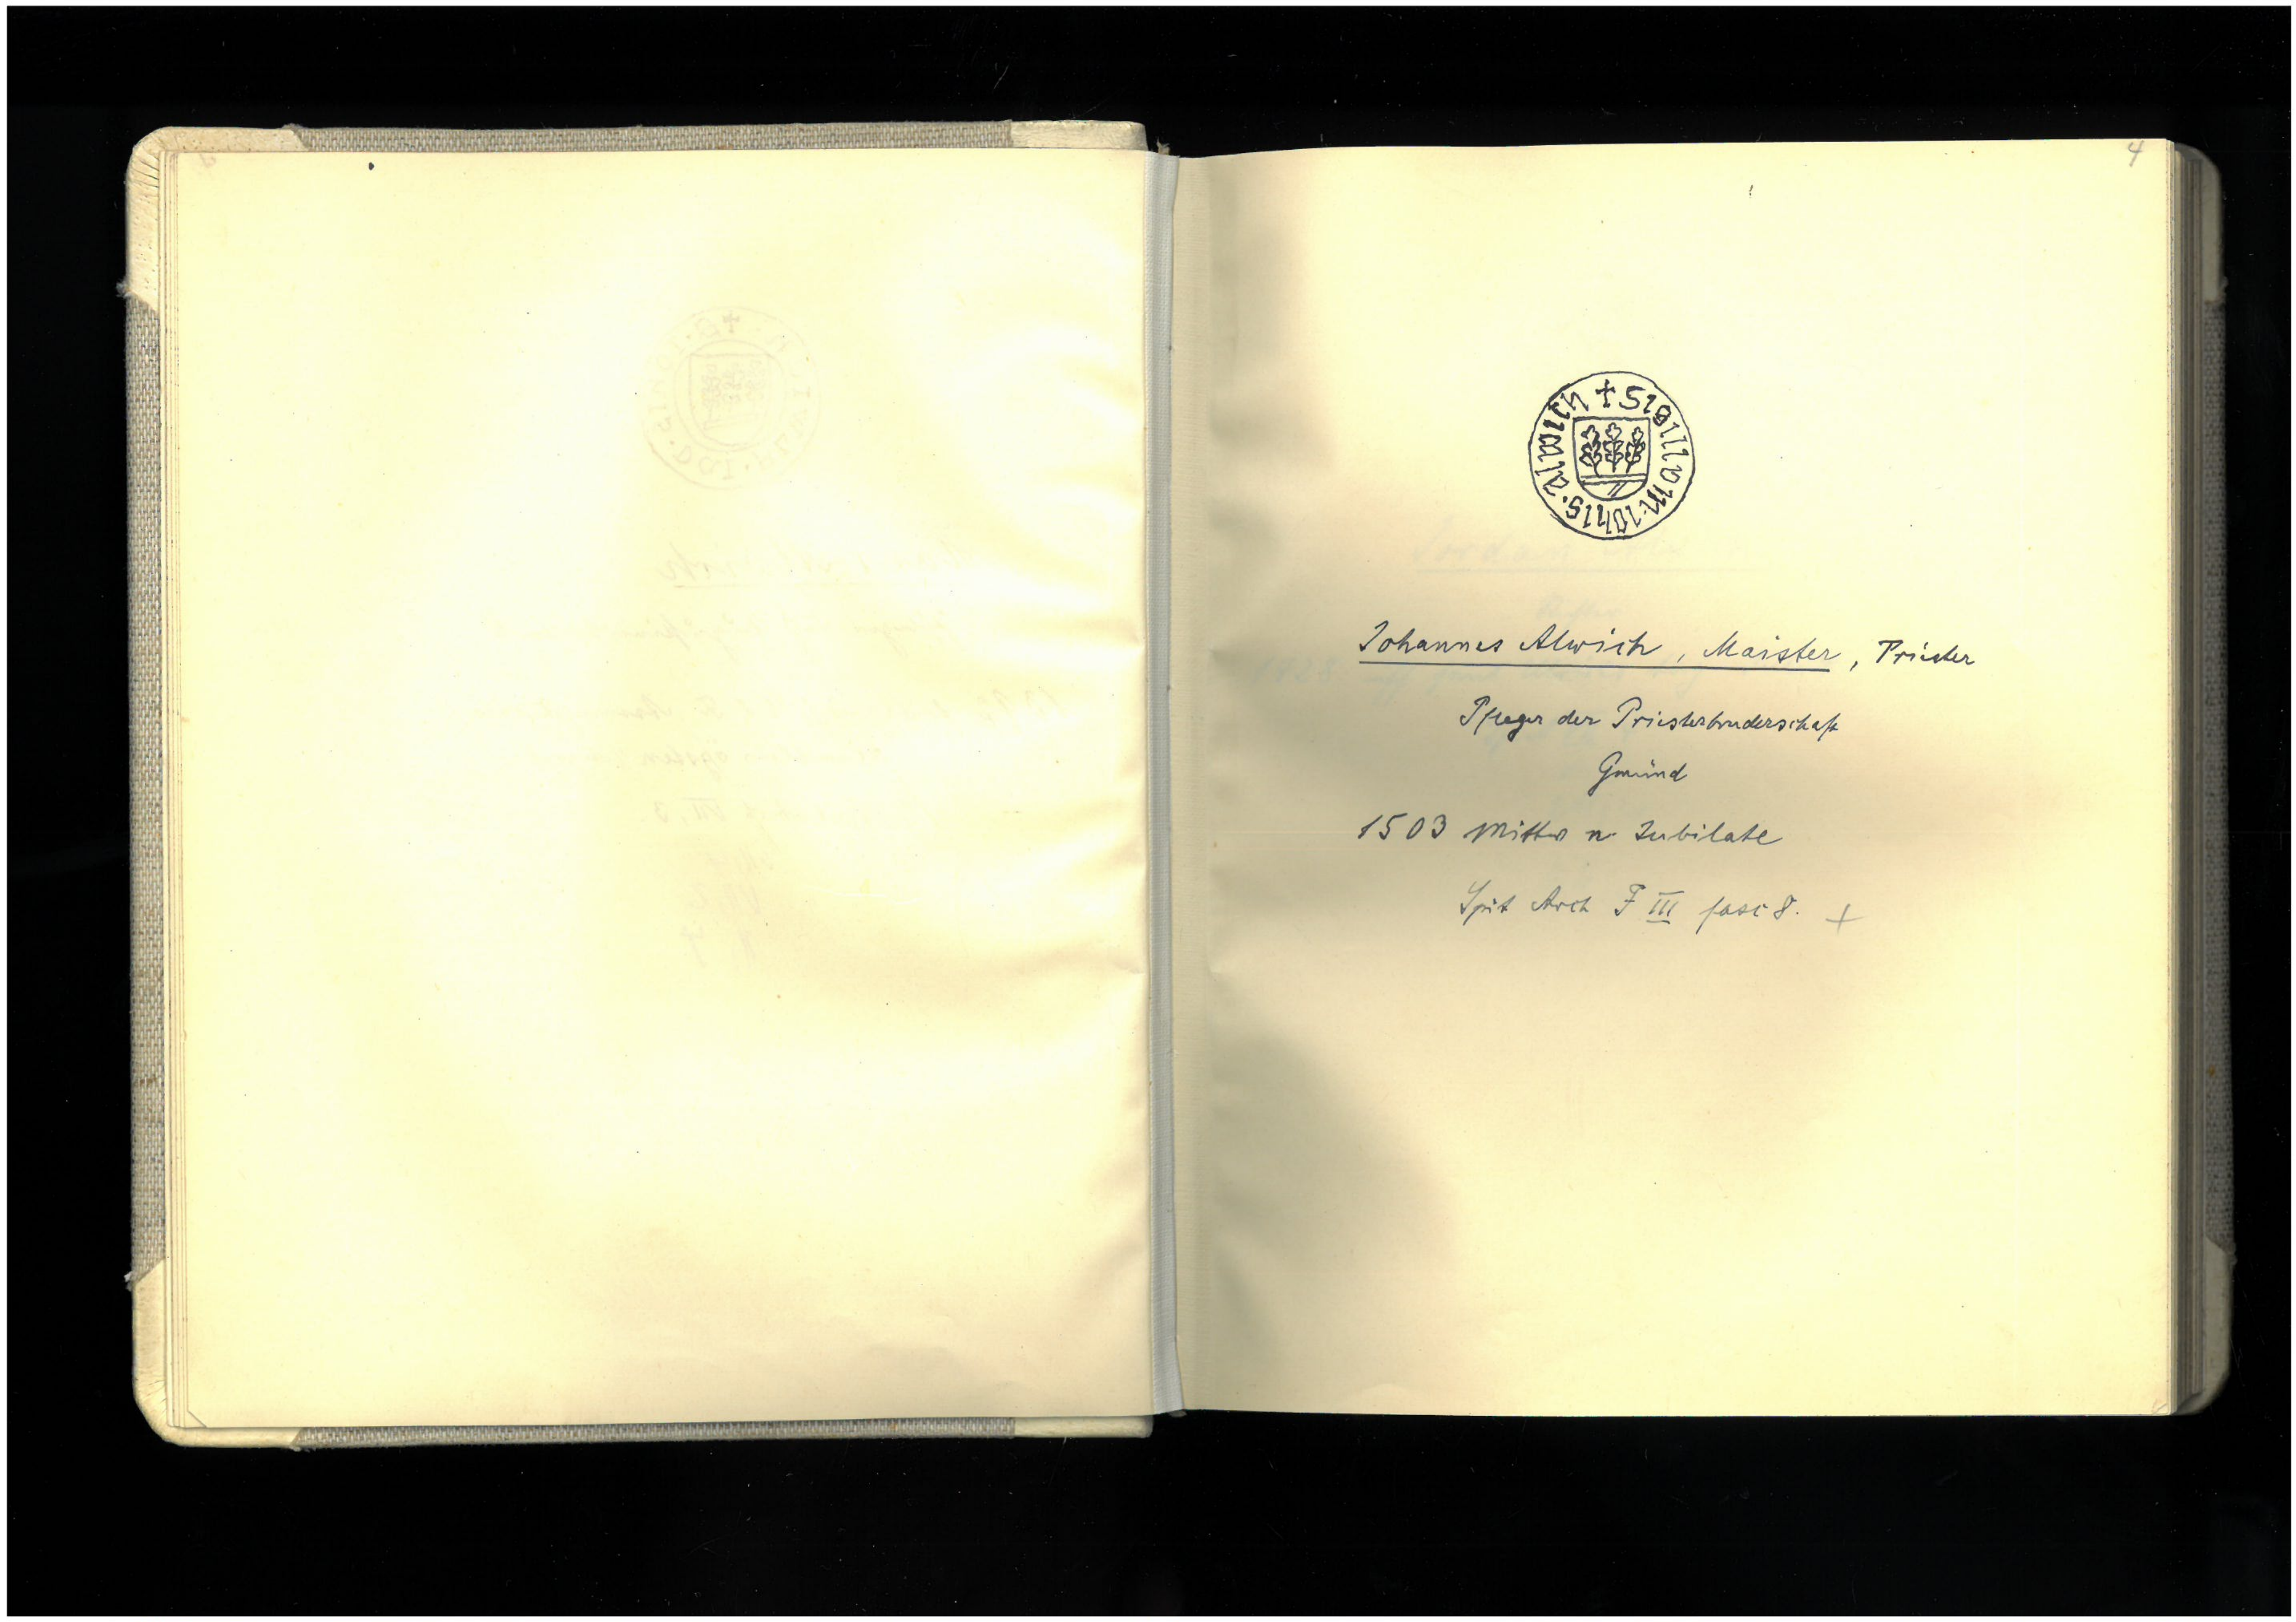 4
+ Sigillvm · Iohis · alwich
Johannes Alwich, Maister, Priester
Pfleger der Priesterbruderschaft
Gmünd
1503 Mittw n. Jubilate
Spit Arch F III fasc 8. +